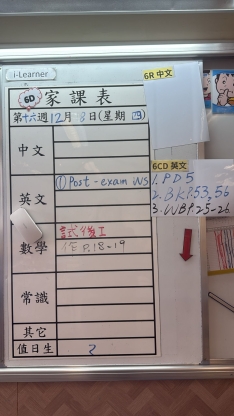 i-Learner
6D 家課表
第十六週12月8日(星期四)
中文
英文
① Post-exam WS
數學
試後I
作 P.18-19
常識
其它
值日生
2
6R 中文
6CD 英文
1. PD5
2. BKP.53,56
3. WBP.25-26